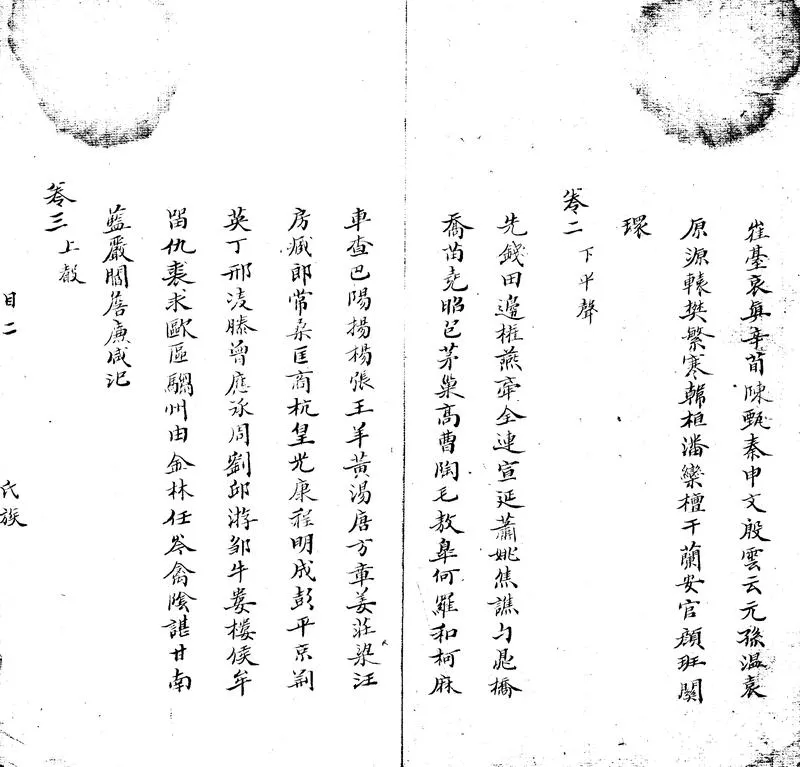 崔臺哀真辛荀陳甄秦申文殷雲云元孫温袁
原源轅樊繁寒韓桓潘欒檀干蘭安官顔班關
環
卷二 下平聲
先錢田邊權燕牽全連宣延蕭姚焦譙刁晁橋
喬苗堯昭包茅巢高曹陶毛敖皐何羅和柯麻
車查巴陽揚楊張王羊黃湯唐方章姜莊梁汪
房臧郎常桑匡商杭皇光康程明成彭平京荊
英丁邢凌滕曾應承周劉邱游鄒牛婁樓侯牟
留仇裘求歐區騶州由金林任岑禽陰諶甘南
藍嚴閻詹廉咸汜
卷三 上聲
目二
氏族